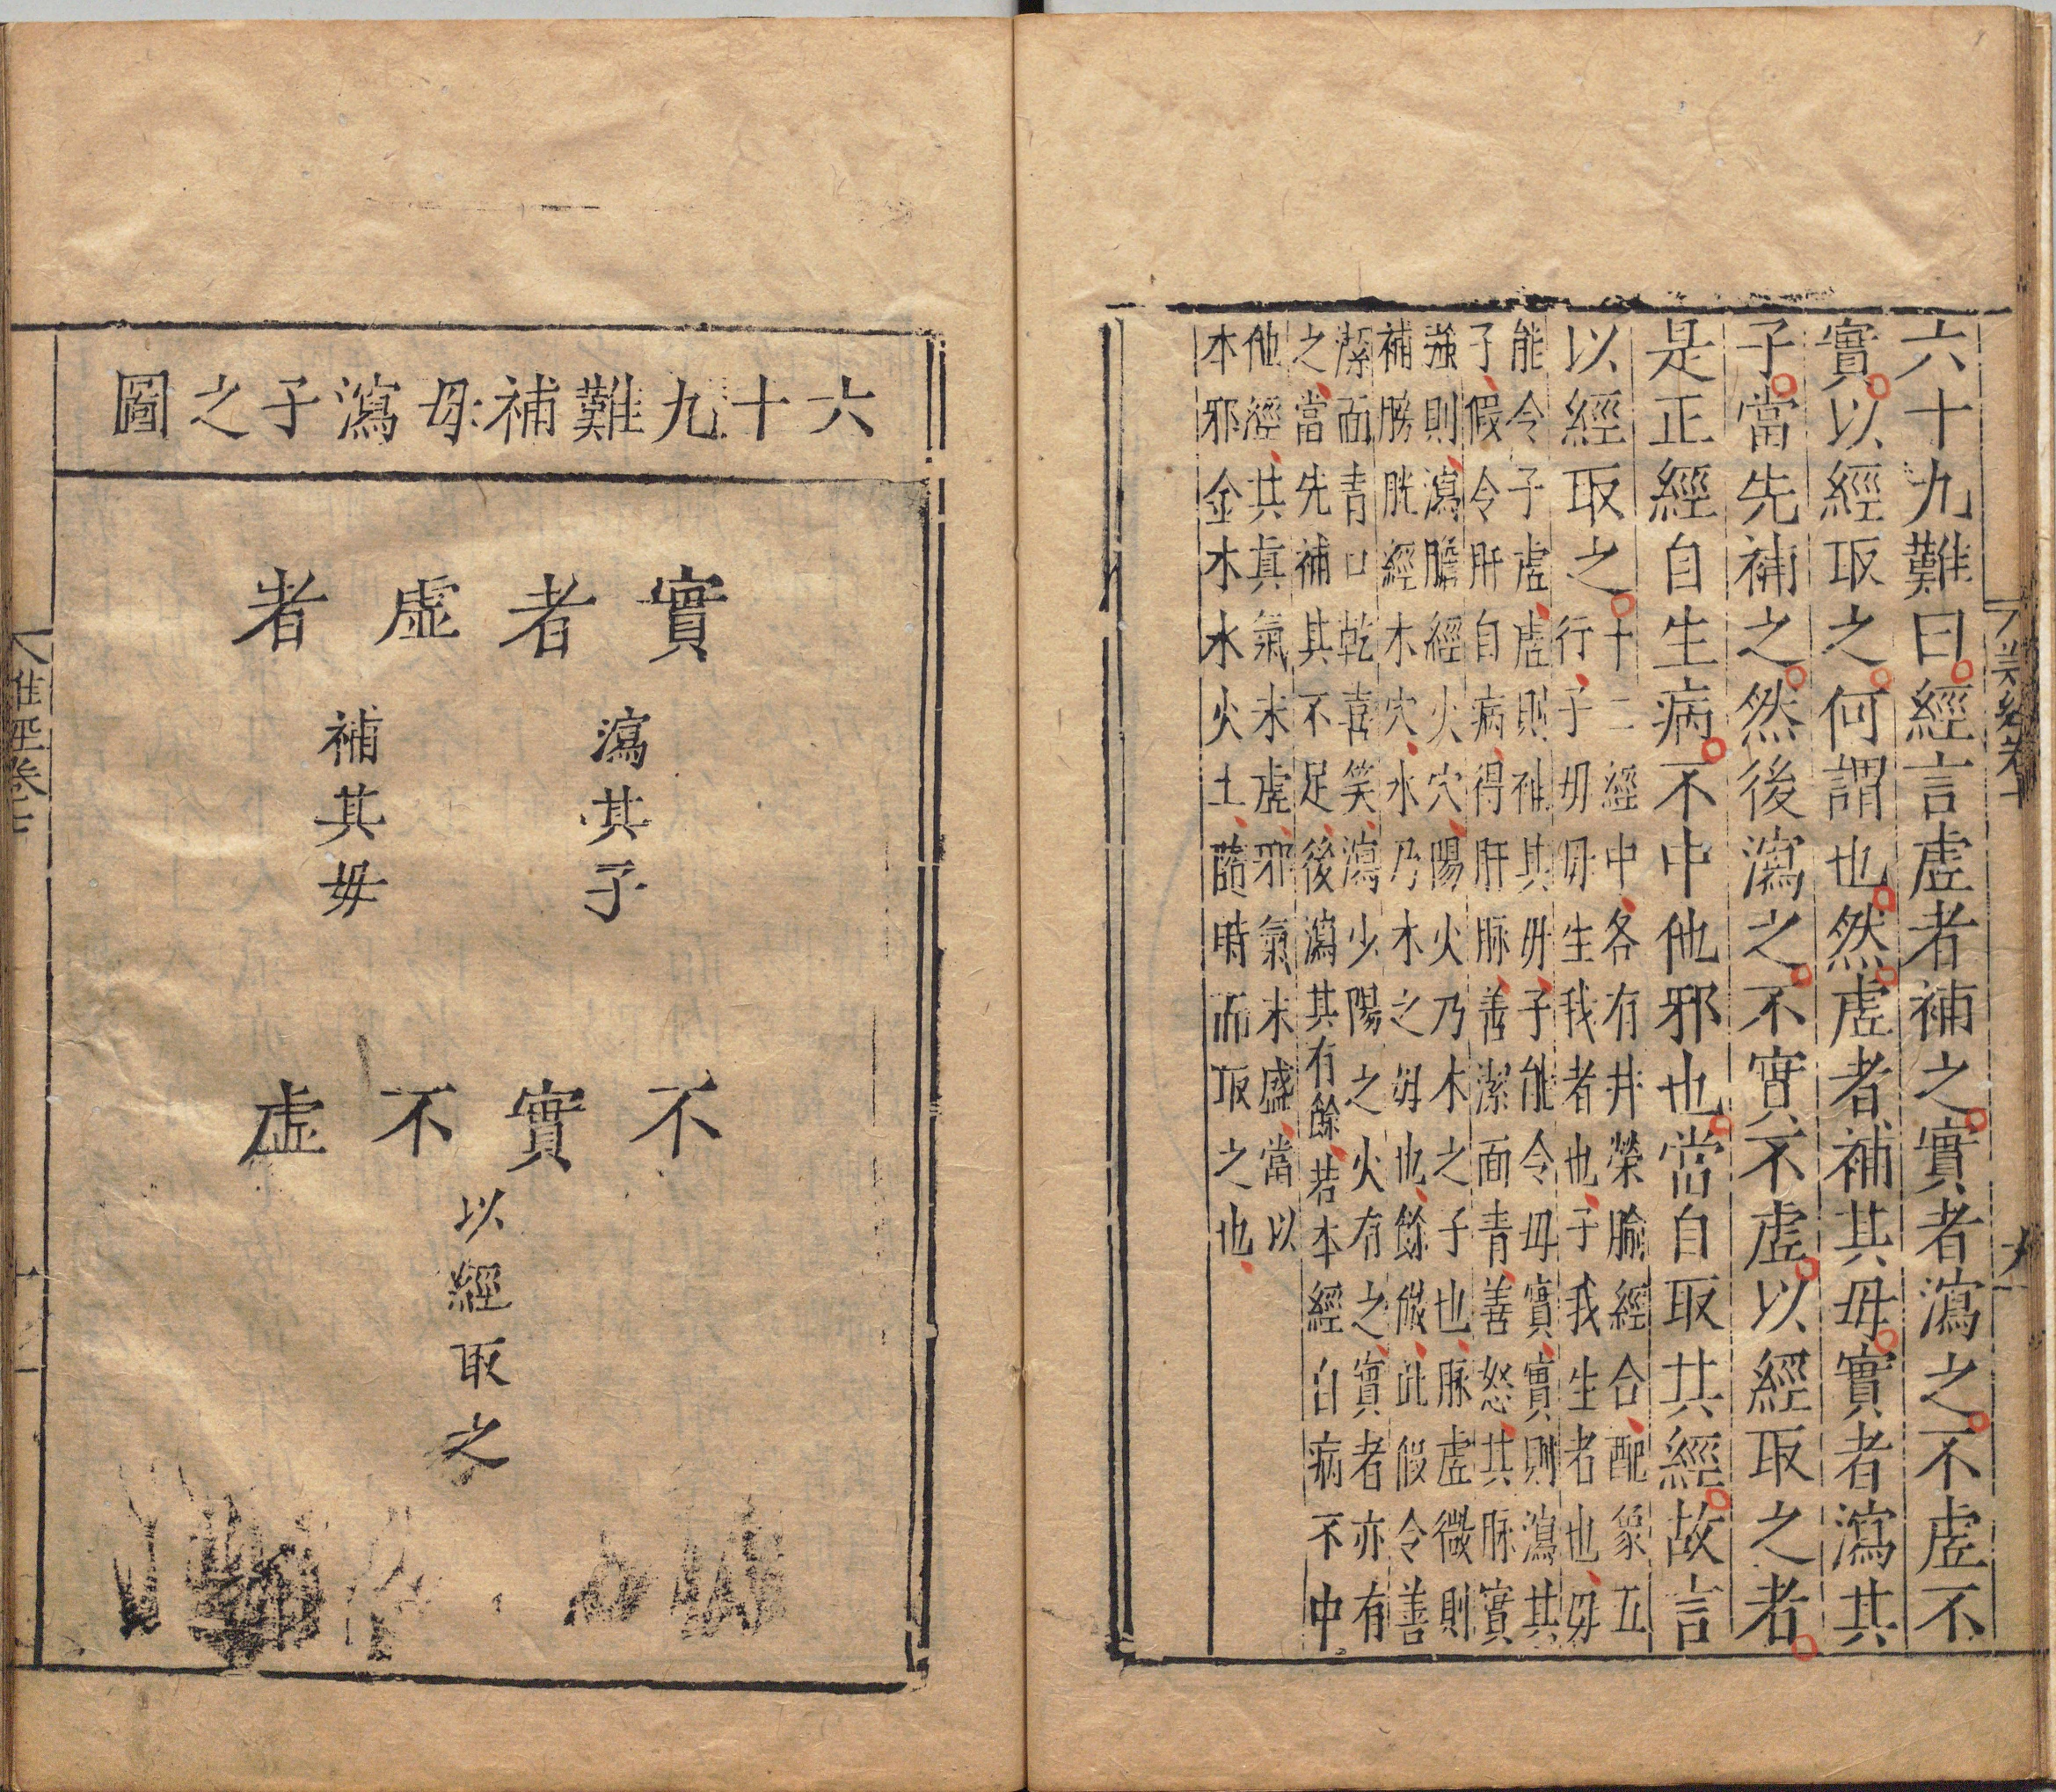 六十九難曰經言虛者補之實者瀉之不虛不
實以經取之何謂也然虛者補其母實者瀉其
子當先補之然後瀉之不實不虛以經取之者
是正經自生病不中他邪也當自取其經故言
以經取之
十二經中各有井榮腧經合配象五
行子母母生我者也子我生者也母
能令子虛虛則補其母子能令母實實則瀉其
子假令肝自病得肝脉善潔面青善怒其脉實
強則瀉膽經火穴陽火乃木之子也脉虛微則
補膀胱經木穴水乃木之母也餘倣此假令善
潔面青口乾喜笑瀉少陽之火有之實者亦有
之當先補其不足後瀉其有餘若本經自病不中
他經共真氣未虛邪氣未盛當以
本邪金木水火土隨時而取之也
六十九難補母瀉子之圖
實者
瀉其子
虛者
補其母
不實不虛
以經取之